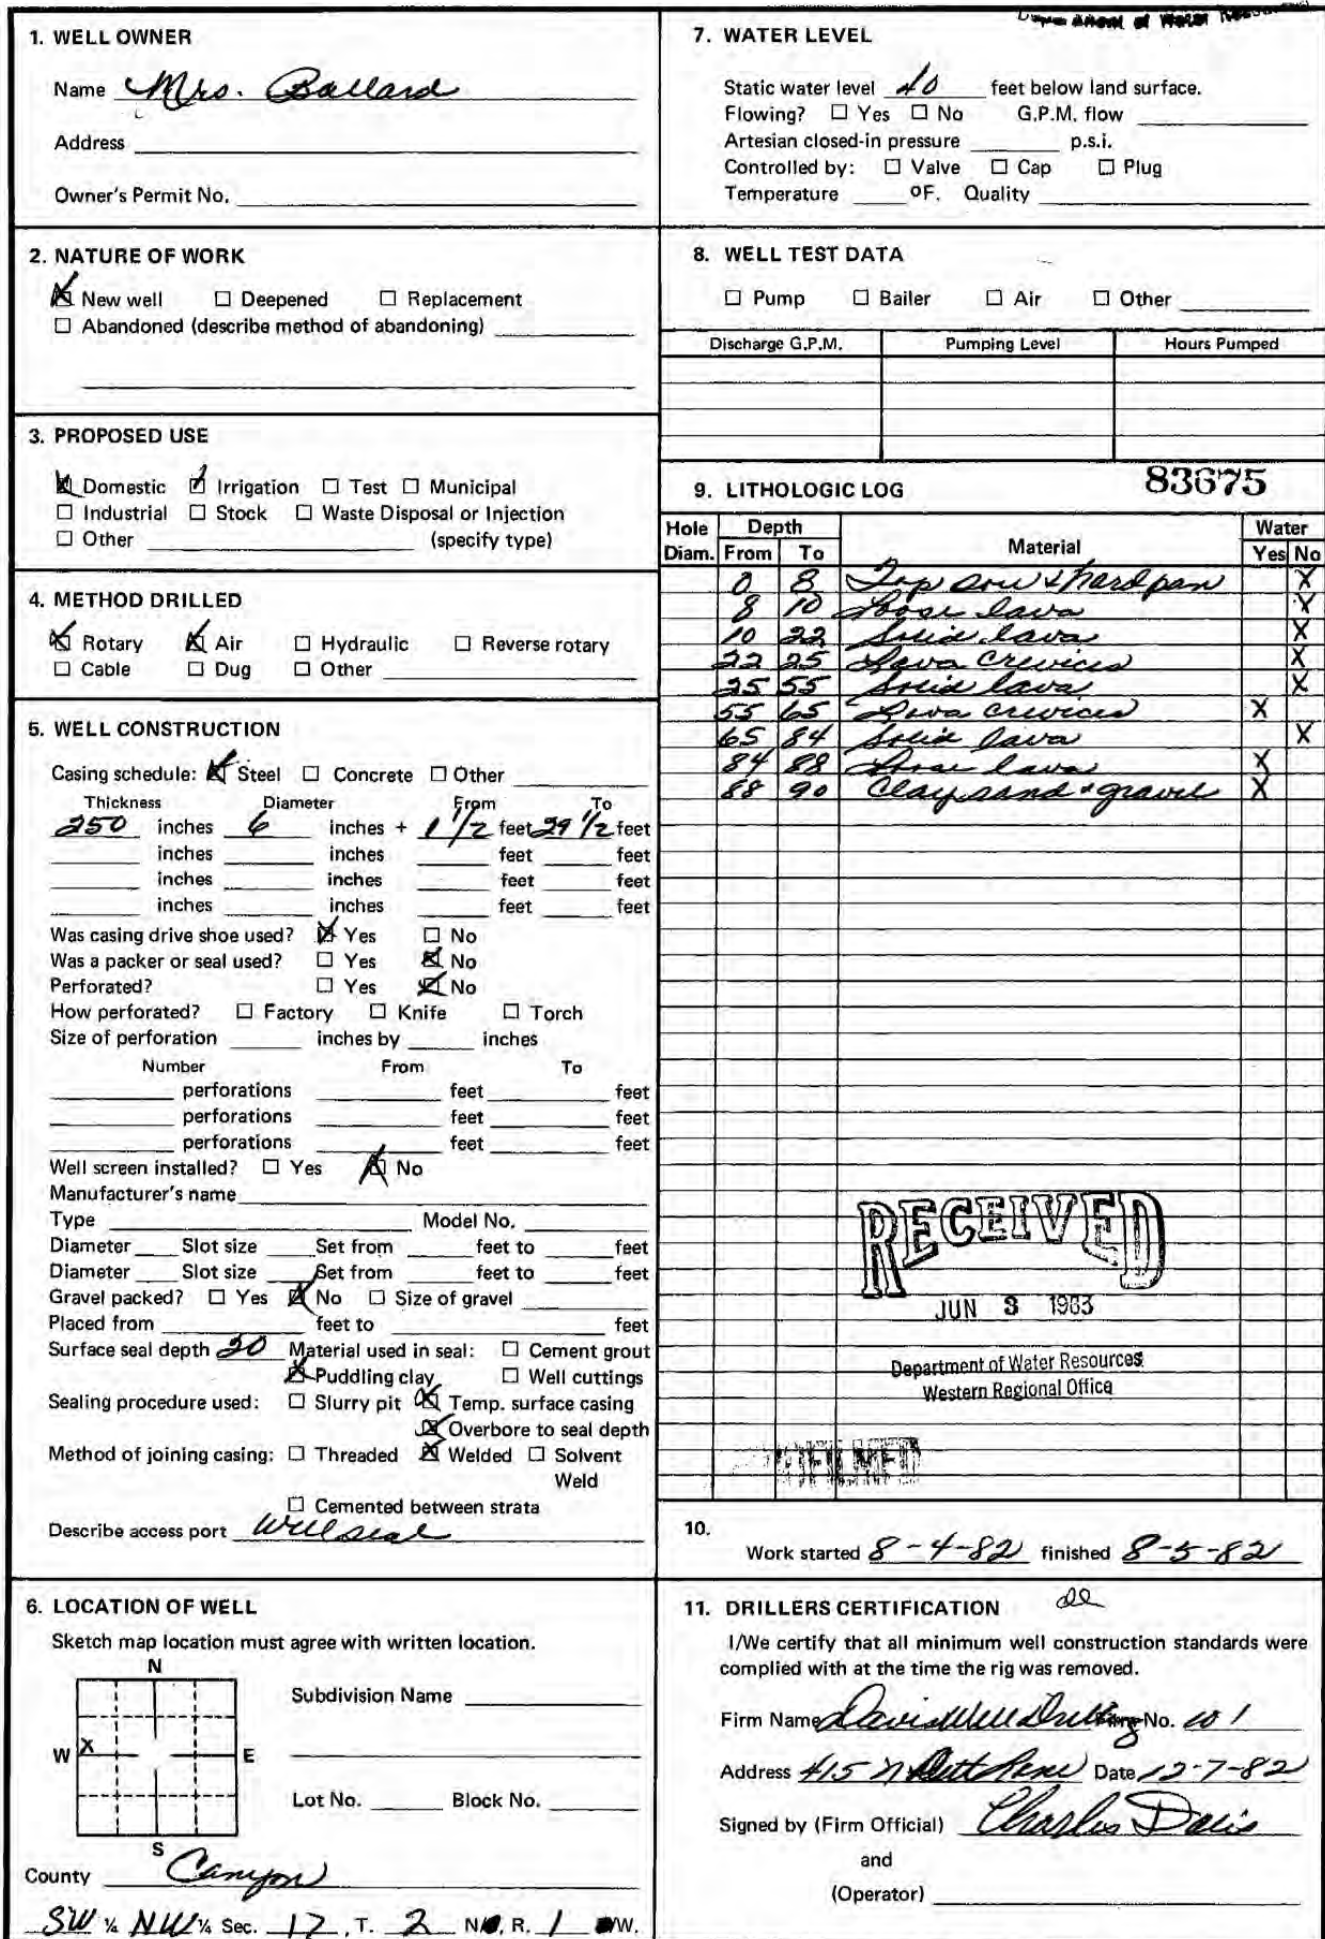 Department of Water Resources
1. WELL OWNER
Name Mrs. Ballard
Address
Owner's Permit No.
2. NATURE OF WORK
☒ New well ☐ Deepened ☐ Replacement
☐ Abandoned (describe method of abandoning)
3. PROPOSED USE
☒ Domestic ☒ Irrigation ☐ Test ☐ Municipal
☐ Industrial ☐ Stock ☐ Waste Disposal or Injection
☐ Other (specify type)
4. METHOD DRILLED
☒ Rotary ☒ Air ☐ Hydraulic ☐ Reverse rotary
☐ Cable ☐ Dug ☐ Other
5. WELL CONSTRUCTION
Casing schedule: ☒ Steel ☐ Concrete ☐ Other
Thickness Diameter From To
250 inches 6 inches + 1 1/2 feet 29 1/2 feet
inches inches feet feet
inches inches feet feet
inches inches feet feet
Was casing drive shoe used? ☒ Yes ☐ No
Was a packer or seal used? ☐ Yes ☒ No
Perforated? ☐ Yes ☒ No
How perforated? ☐ Factory ☐ Knife ☐ Torch
Size of perforation inches by inches
Number From To
perforations feet feet
perforations feet feet
perforations feet feet
Well screen installed? ☐ Yes ☒ No
Manufacturer's name
Type Model No.
Diameter Slot size Set from feet to feet
Diameter Slot size Set from feet to feet
Gravel packed? ☐ Yes ☒ No ☐ Size of gravel
Placed from feet to feet
Surface seal depth 20 Material used in seal: ☐ Cement grout
☒ Puddling clay ☐ Well cuttings
Sealing procedure used: ☐ Slurry pit ☒ Temp. surface casing
☒ Overbore to seal depth
Method of joining casing: ☐ Threaded ☒ Welded ☐ Solvent
Weld
☐ Cemented between strata
Describe access port Well seal
6. LOCATION OF WELL
Sketch map location must agree with written location.
N
W X E
S
Subdivision Name
Lot No. Block No.
County Canyon
SW ¼ NW ¼ Sec. 17, T. 2 N, R. 1 W.
7. WATER LEVEL
Static water level 40 feet below land surface.
Flowing? ☐ Yes ☐ No G.P.M. flow
Artesian closed-in pressure p.s.i.
Controlled by: ☐ Valve ☐ Cap ☐ Plug
Temperature °F. Quality
8. WELL TEST DATA
☐ Pump ☐ Bailer ☐ Air ☐ Other
Discharge G.P.M. Pumping Level Hours Pumped
9. LITHOLOGIC LOG 83675
Hole Depth Water
Diam. From To Material Yes No
0 8 Top soil & hard pan X
8 10 Loose lava X
10 22 Solid lava X
22 25 Lava crevices X
25 55 Solid lava X
55 65 Lava crevices X
65 84 Solid lava X
84 88 Loose lava X
88 90 Clay sand & gravel X
RECEIVED
JUN 3 1983
Department of Water Resources
Western Regional Office
10.
Work started 8-4-82 finished 8-5-82
11. DRILLERS CERTIFICATION
I/We certify that all minimum well construction standards were
complied with at the time the rig was removed.
Firm Name Davis Well Drilling Firm No. 1
Address 415 N Date 12-7-82
Signed by (Firm Official) Charles Davis
and
(Operator)